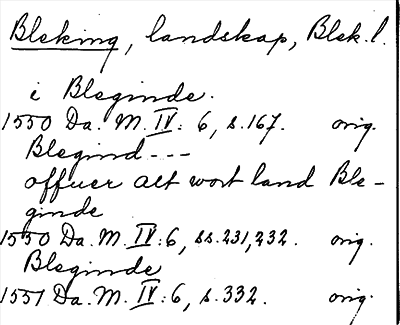 Bleking, landskap, Blek.l.
i Bleginde.
1550 Da. M. IV: 6, s. 167. orig.
Blegind---
offuer alt wort land Ble-
ginde
1550 Da. M. IV: 6, ss. 231, 232. orig.
Bleginde
1551 Da. M. IV: 6, s. 332. orig.